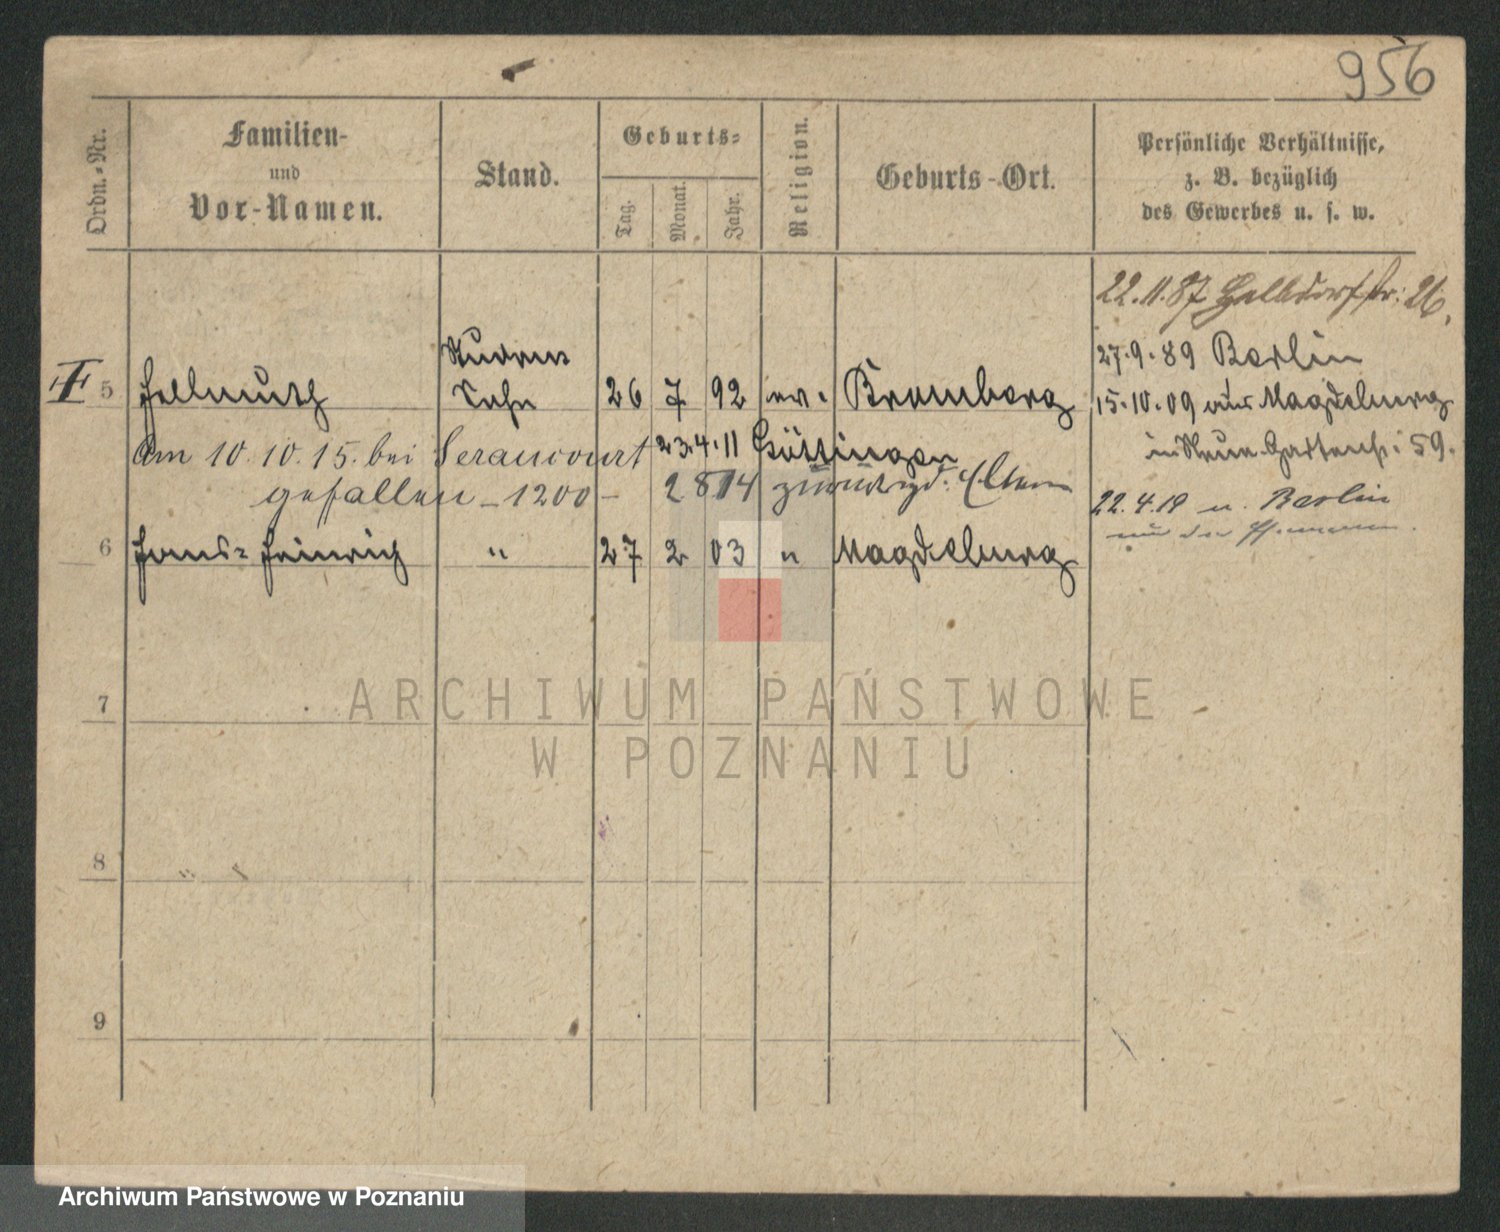 956
Ordn.-Nr.
Familien-
und
Vor-Namen.
Stand.
Geburts-
Tag.
Monat.
Jahr.
Religion.
Geburts-Ort.
Persönliche Verhältnisse,
z. B. bezüglich
des Gewerbes u. s. w.
22.11.87
26.
27.9.89 Berlin
5 Hellmuth Sohn 26 7 92 ev. Bromberg
15.10.09 aus Magdeburg
Am 10.10.15. bei Seraucourt 23.4.11 Göttingen
in Neue Gartenstr. 59.
gefallen - 1200 - 2814 zurück Eltern
22.4.19 n. Berlin
6 Hans-Heinrich " 27 2 03 " Magdeburg
7
8
9
ARCHIWUM PAŃSTWOWE
W POZNANIU
Archiwum Państwowe w Poznaniu